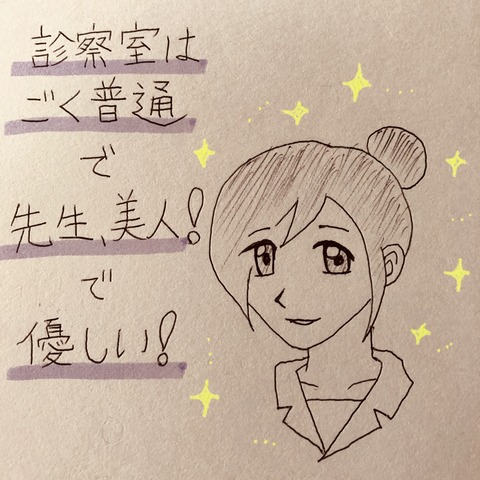 診察室は
ごく普通
で
先生、美人!
で
優しい!